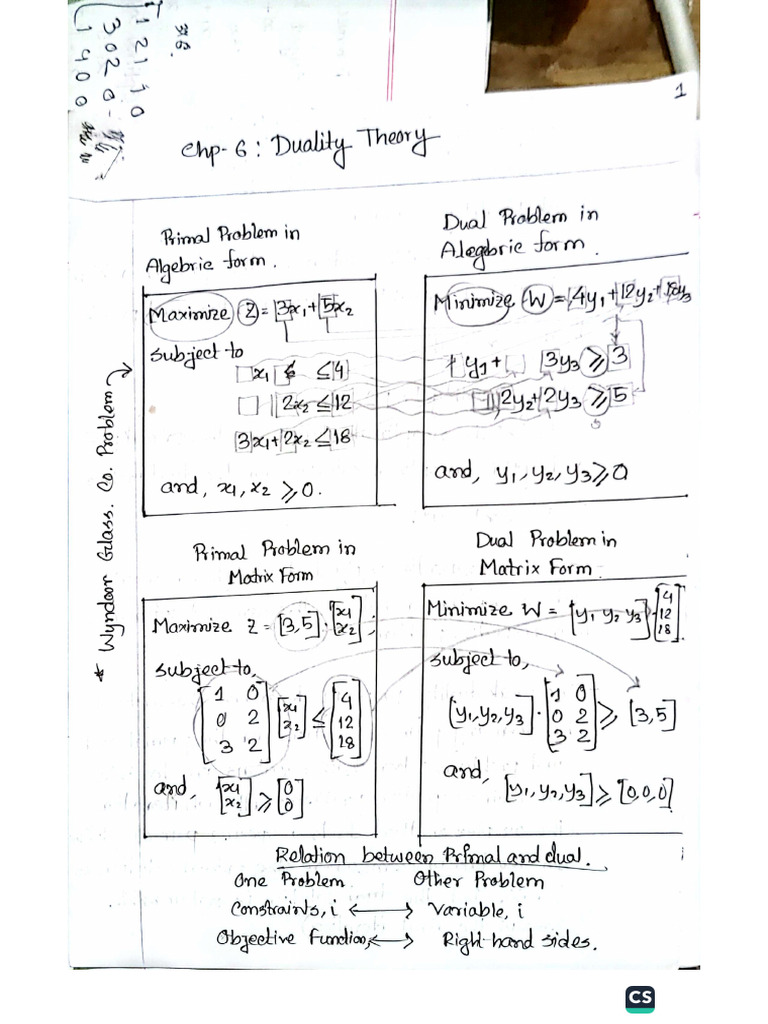 1 2 1 1 0
3 0 2 0
1 4 0 0
1
Chp-6: Duality Theory
Primal Problem in
Algebric form.
Maximize Z = 3x₁ + 5x₂
subject to
x₁ ≤ 4
2x₂ ≤ 12
3x₁ + 2x₂ ≤ 18
and, x₁, x₂ ≥ 0.
Dual Problem in
Alegbric form.
Minimize W = 4y₁ + 12y₂ + 18y₃
y₁ + 3y₃ ≥ 3
2y₂ + 2y₃ ≥ 5
and, y₁, y₂, y₃ ≥ 0
* Wyndoor Glass. Co. Problem
Primal Problem in
Matrix Form
Maximize Z = [3,5] · [x₁ x₂];
subject to,
[1 0
0 2
3 2] [x₁ x₂] ≤ [4 12 18]
and, [x₁ x₂] ≥ [0 0]
Dual Problem in
Matrix Form
Minimize W = [y₁ y₂ y₃] · [4 12 18].
subject to,
[y₁, y₂, y₃] · [1 0
0 2
3 2] ≥ [3,5]
and,
[y₁, y₂, y₃] ≥ [0,0,0]
Relation between Primal and dual.
One Problem Other Problem
Constraints, i ↔ Variable, i
Objective Function ↔ Right hand sides.
CS